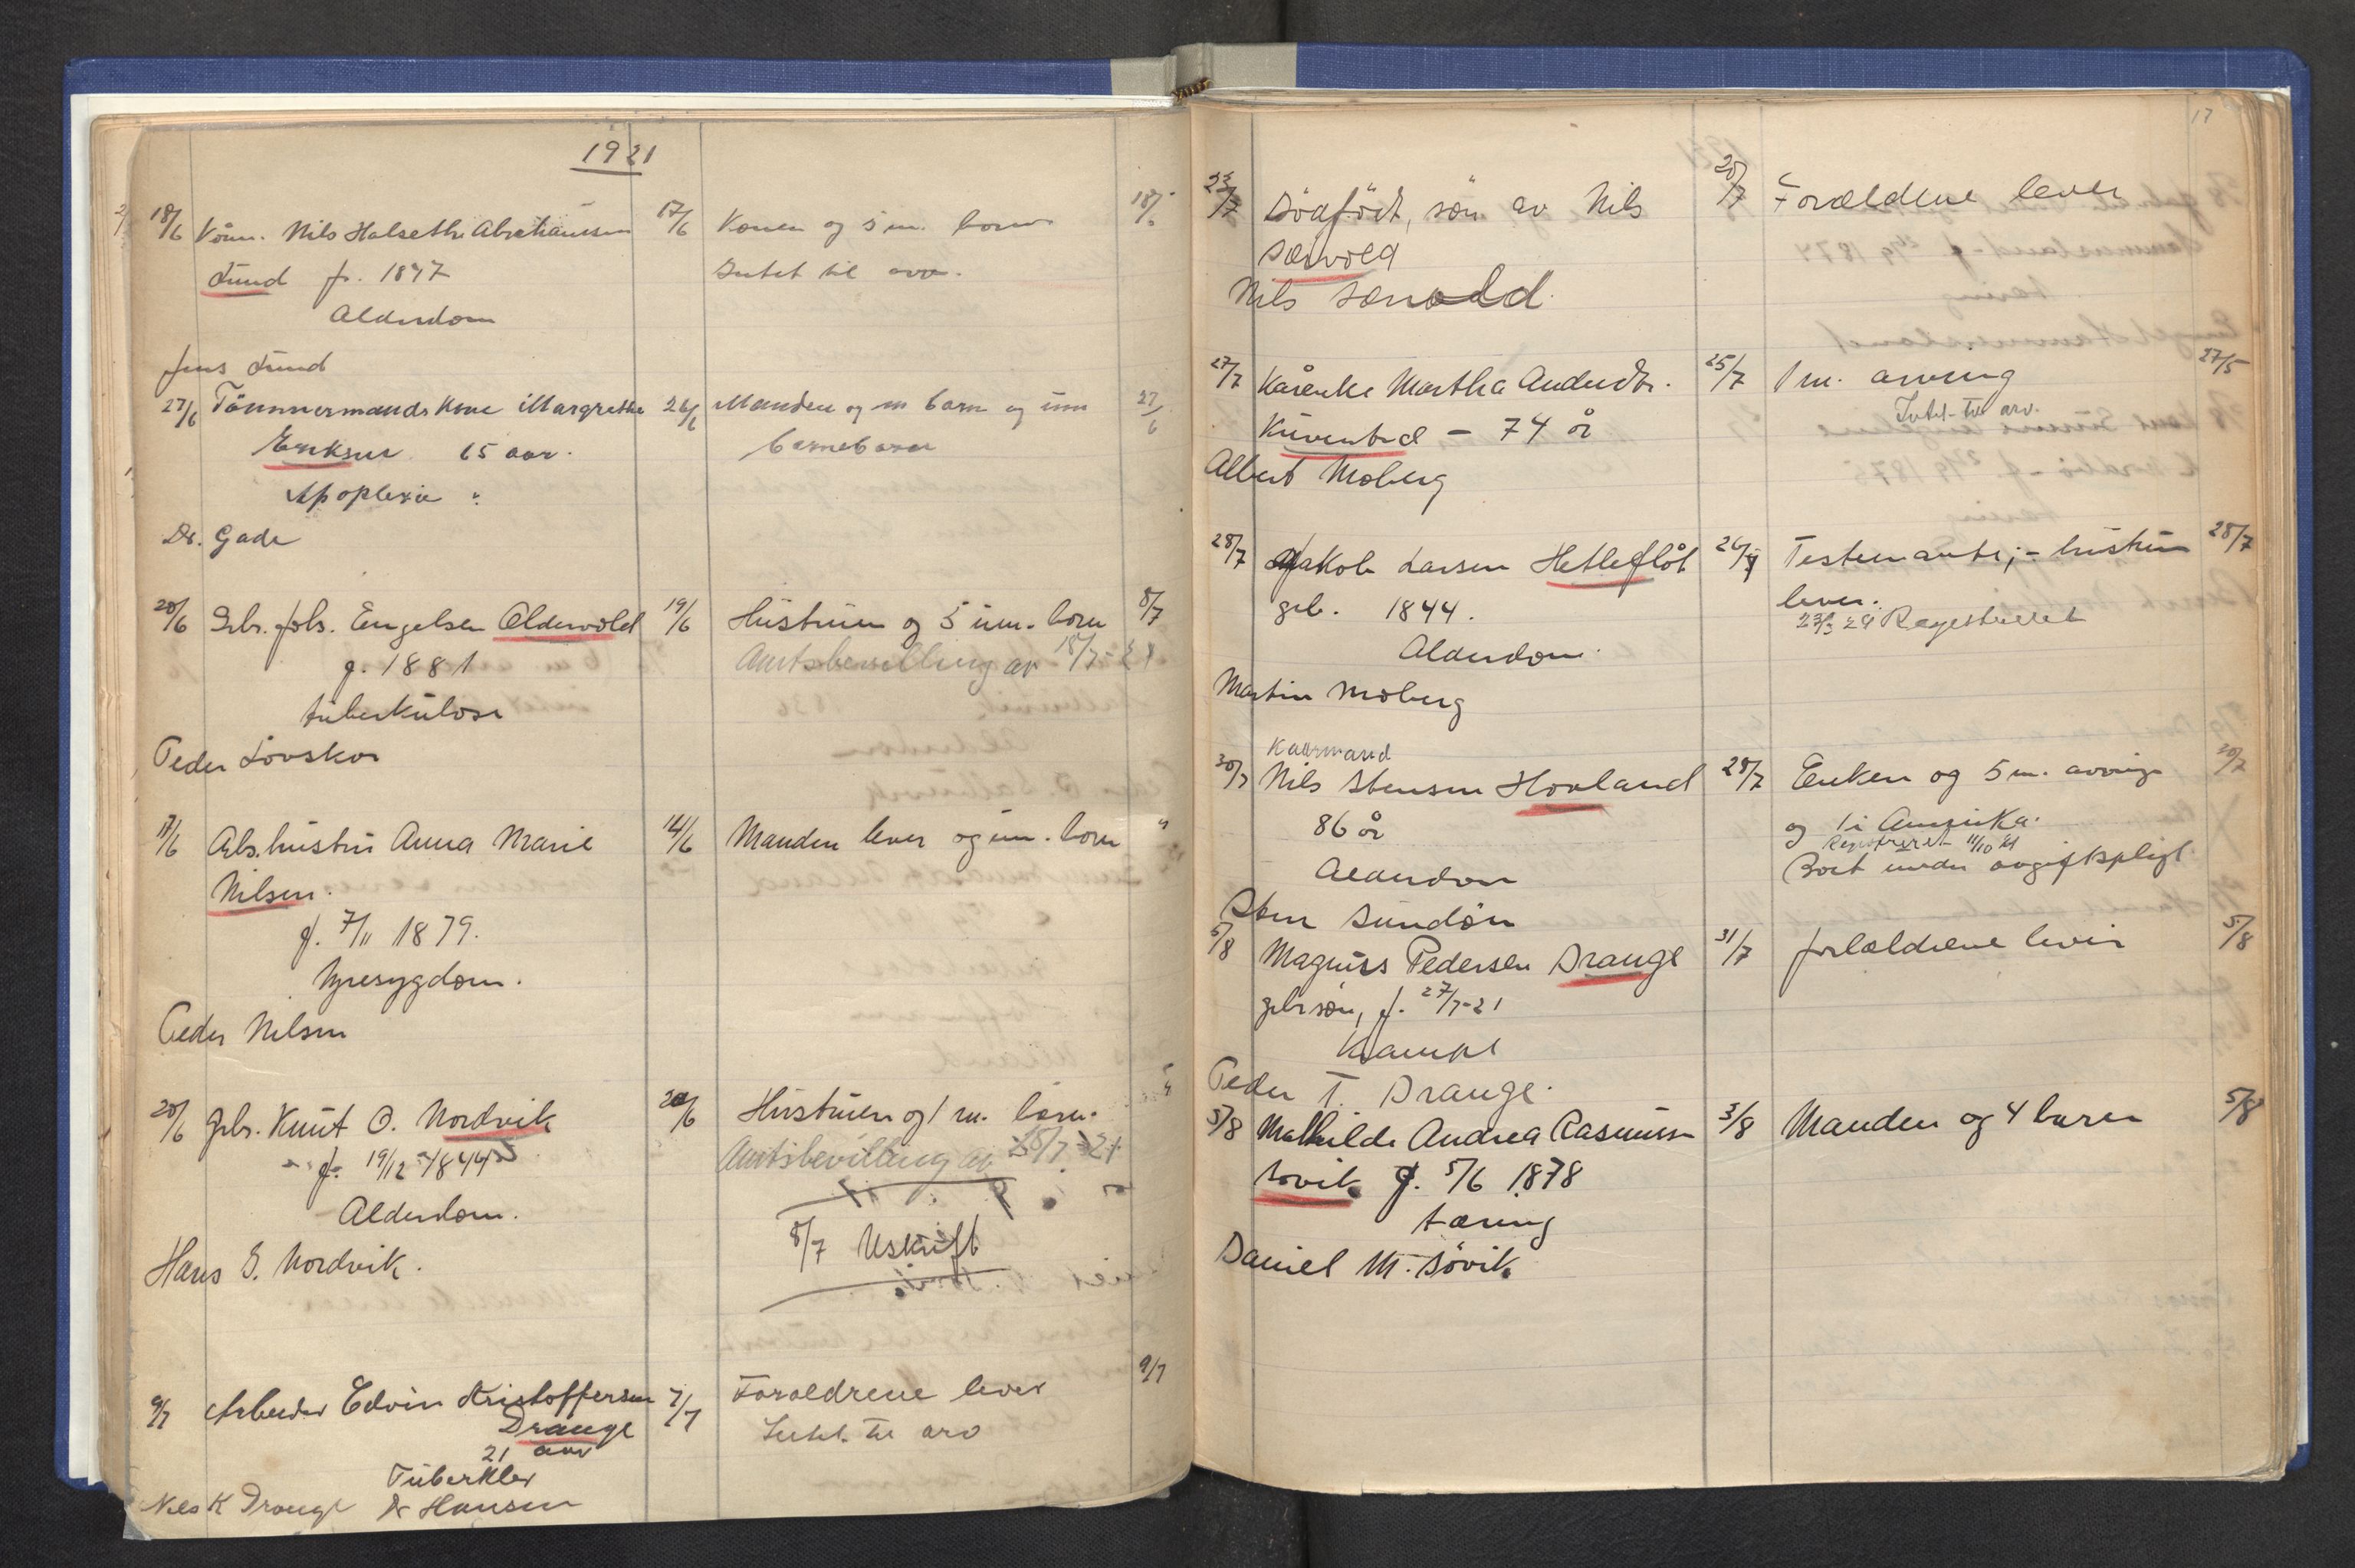 1921
18/6 Kårm. Nils Halseth Abrahamsen 17/6 Konen og 5 m. born 18/6
Lund f. 1847 Intet til arv.
Alderdom
Jens Lund
27/6 Tömmermands kone Margrethe 26/6 Manden og m barn og um 27/6
Eriksen 65 aar. barnebarn
Apoplexie
Dr. Gade
20/6 Grb. Johs. Engelsen Oldervold 19/6 Hustruen og 5 um. born 8/7
f. 1881 Amtsbevilling av 18/7-21
tuberkulose
Peder Lovskor
17/6 Arb. hustru Anna Marie 14/6 Manden lever og um. born "
Nilsen.
f. 7/11 1879.
Nyresygdom.
Peder Nilsen
20/6 Grb. Knut O. Nordvik 20/6 Hustruen og 1 m. barn.
f. 19/12 1844 Amtsbevilling av 18/7-21
Alderdom.
8/7 Uskift
Hans S. Nordvik.
9/7 Arbeider Edvin Kristoffersen 7/7 Foraldrene lever 9/7
Drange Intet til arv
21 aar
Tuberkler
Nils K Drange Dr Hansen
17
23/7 Dödfödt, sön av Nils 20/7 Forældrene lever
Sævold
Nils Sævold.
27/7 Kårenke Martha Andersdtr. 25/7 1 m. arving 27/5
Kuventræ - 74 år Intet til arv.
Albert Moberg
28/7 Jakob Larsen Hetleflöt 26/7 Testemante; - hustru 28/7
grb. 1844. lever.
Alderdom. 23/3 24 Registreret
Martin Moberg
Kaarmand
30/7 Nils Stensen Hovland 28/7 Enken og 5 m. arvinge 30/7
86 år og 1 i Amerika.
Registreret 11/10 21
Alderdom Bort under avgiftspligt
Sten Sundön
5/8 Magnus Pedersen Drange 31/7 forældrene lever 5/8
grbr sön, f. 27/7-21
Krampe
Peder T. Drange.
5/8 Mathilde Andrea Rasmussen 3/8 Manden og 4 barn 5/8
Sövik f. 5/6 1878
tæring
Daniel M. Sövik